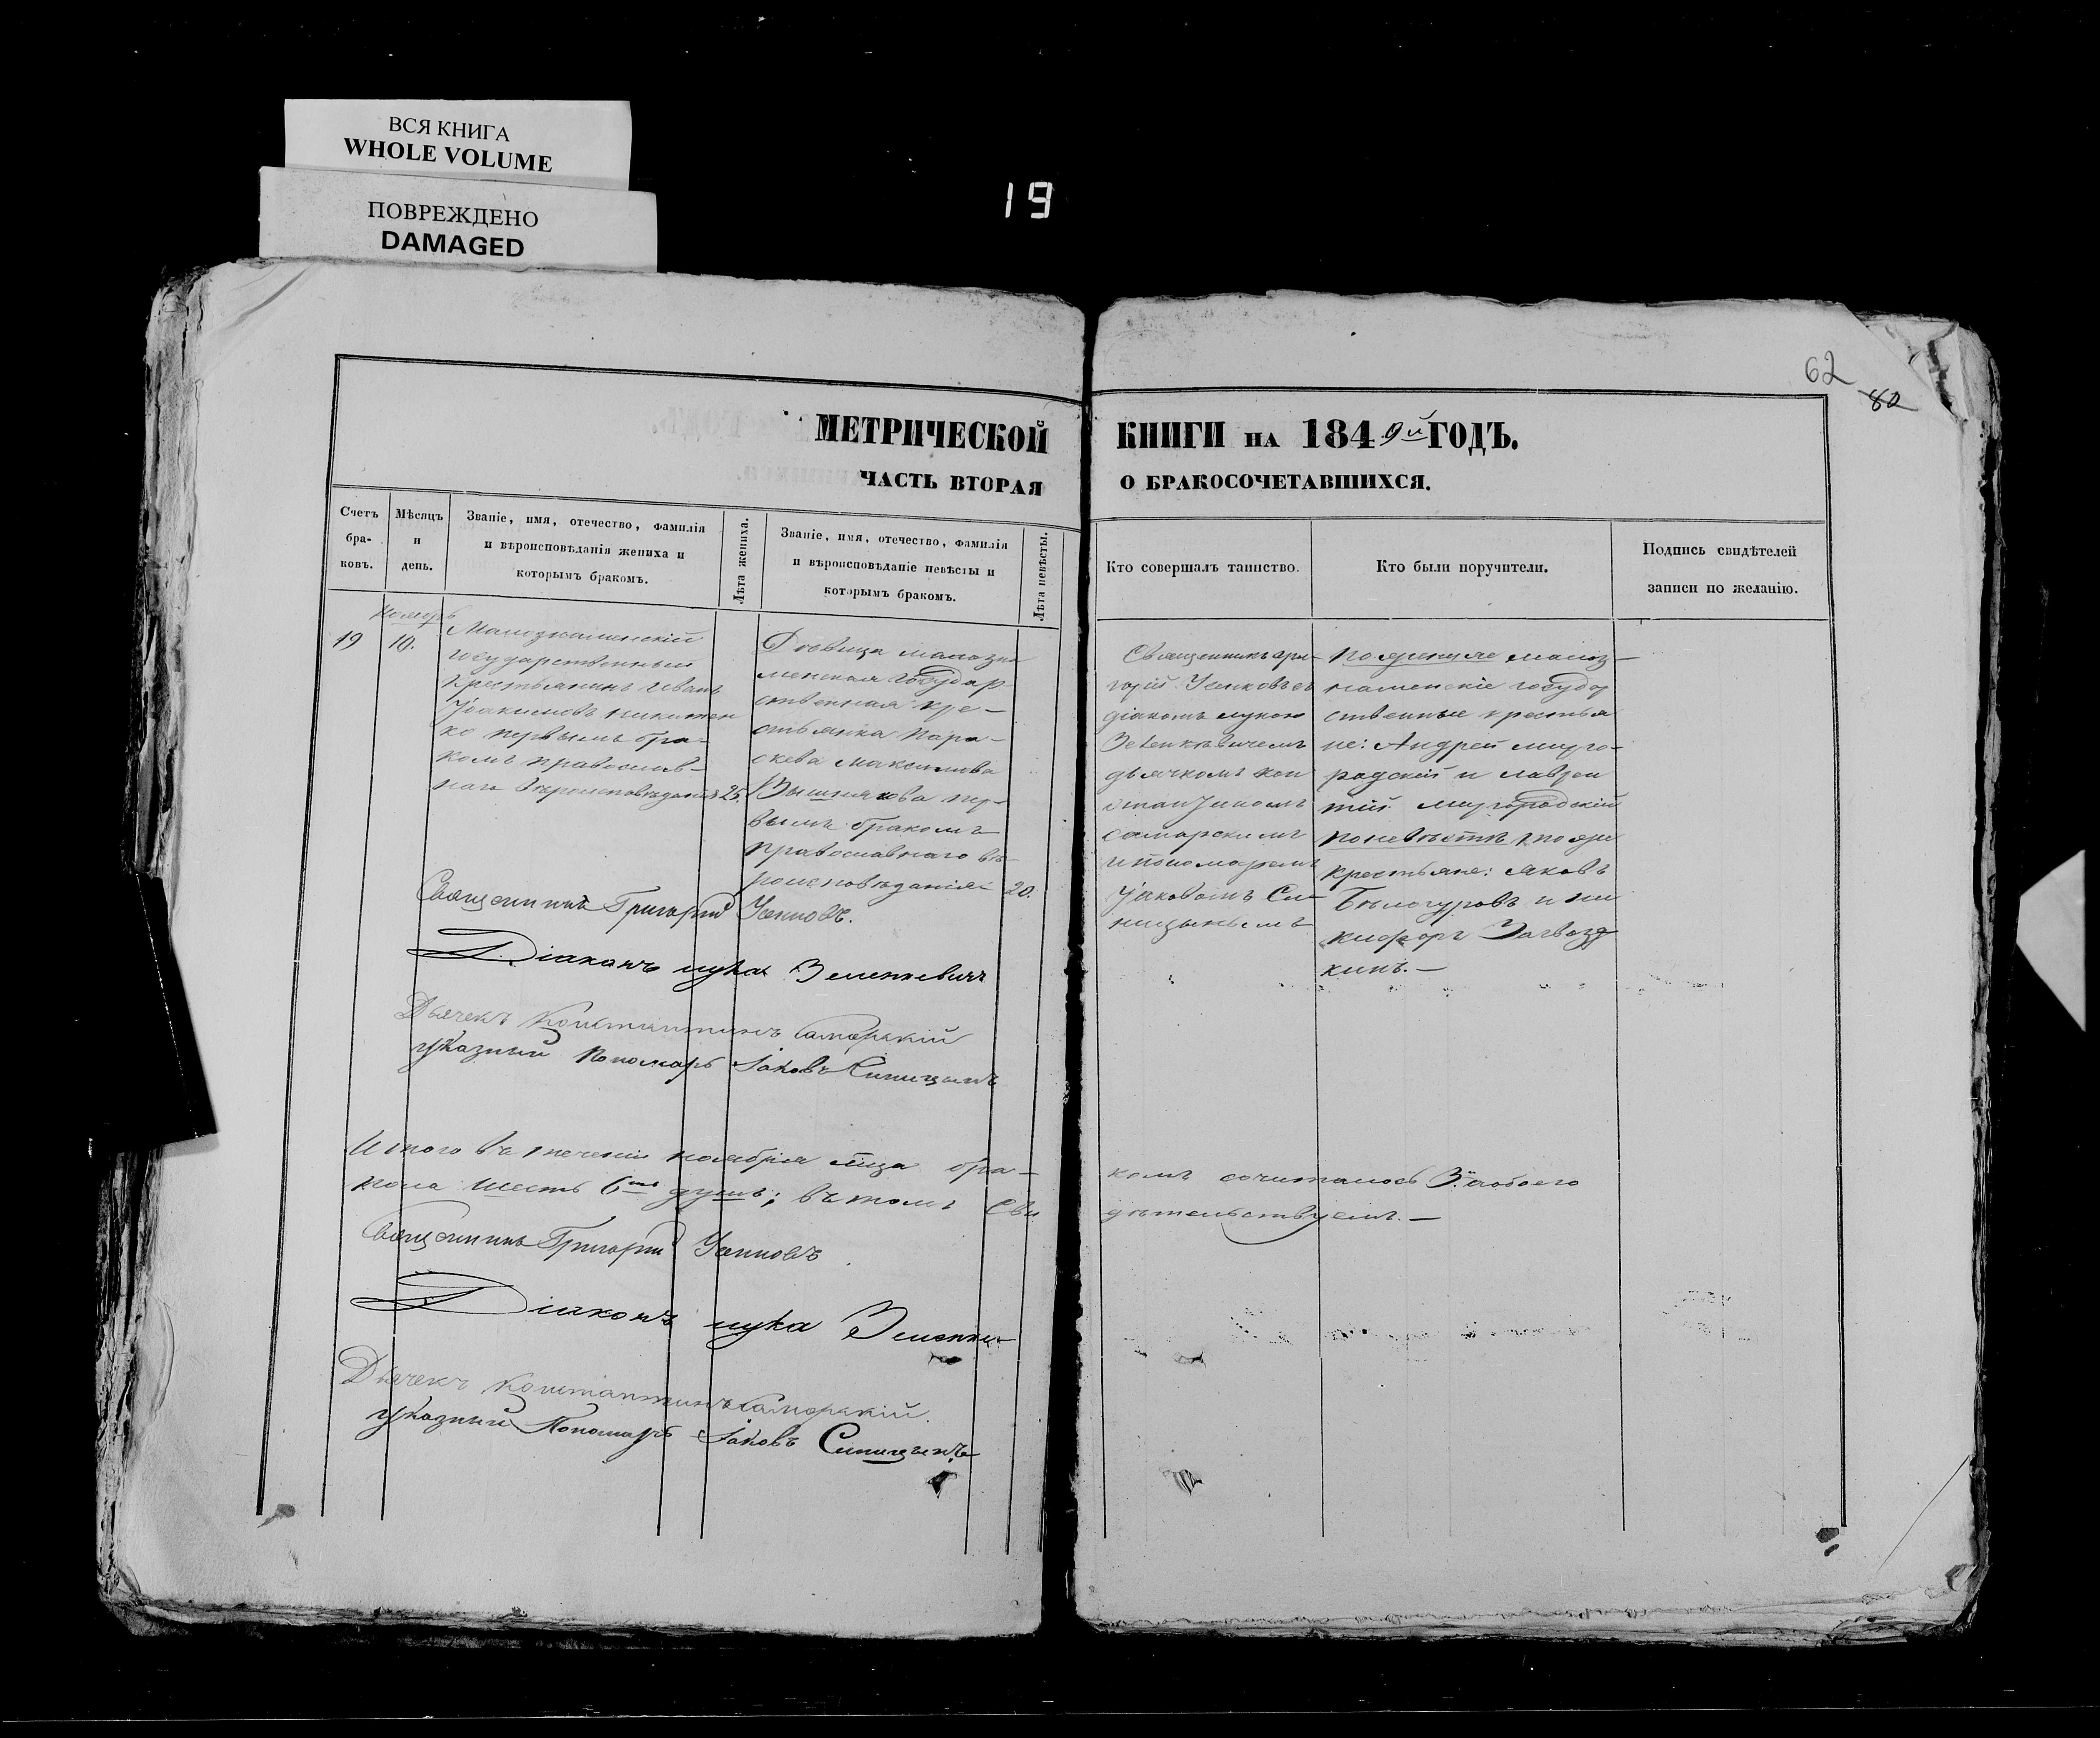 ВСЯ КНИГА
WHOLE VOLUME
ПОВРЕЖДЕНО
DAMAGED
19
62
82
МЕТРИЧЕСКОЙ КНИГИ НА 1849й ГОДЪ.
ЧАСТЬ ВТОРАЯ О БРАКОСОЧЕТАВШИХСЯ.
Счетъ
бра-
ковъ.
Мѣсяцъ
и
день.
Званіе, имя, отечество, фамилія
и вѣроисповѣданія жениха и
которымъ бракомъ.
Лѣта жениха.
Званіе, имя, отечество, фамилія
и вѣроисповѣданіе невѣсты и
которымъ бракомъ.
Лѣта невѣсты.
Кто совершалъ таинство.
Кто были поручители.
Подпись свидѣтелей
записи по желанію.
19
ноябрь
10.
Малознаменскій
государственный
крестьянинъ Иванъ
Іоакимовъ Никитен
ко первымъ бра-
комъ православ-
наго вѣроисповѣданія 25.
Дѣвица малозна
менская государ
ственная кре-
стьянка Пара-
скева Максимова
Вышнякова пер-
вымъ бракомъ
православнаго вѣ-
роисповѣданія 20.
Священникъ Гри-
горій Усиковъ съ
діакомъ лукою
Зеленкевичемъ
дьячкомъ Кон
стантиномъ
Самарскимъ
и пономаремъ
Іаковомъ Си-
ницынымъ
по женихе малоз-
наменскіе государ
ственные крестья
не: Андрей Мирго-
родскій и Лаврен
тій Миргородскій
по невѣстѣ
крестьяне: Яковъ
Бѣлогуровъ и Ни
кифоръ Загвозд
кинъ.—
Священникъ Григорій Усиковъ.
Діаконъ Лука Зеленкевичъ
Дьячекъ Константинъ Самарскій
указный Пономарь Іаковъ Синицынъ
Итого въ теченіи ноября мца бра-
комъ сочиталось 3. а обоего
пола шесть 6ть душъ; въ томъ сви
дѣтельствуемъ.—
Священникъ Григорій Усиковъ
Діаконъ Лука Зеленке
Дьячекъ Константинъ Самарскій.
указный Пономарь Іаковъ Синицынъ